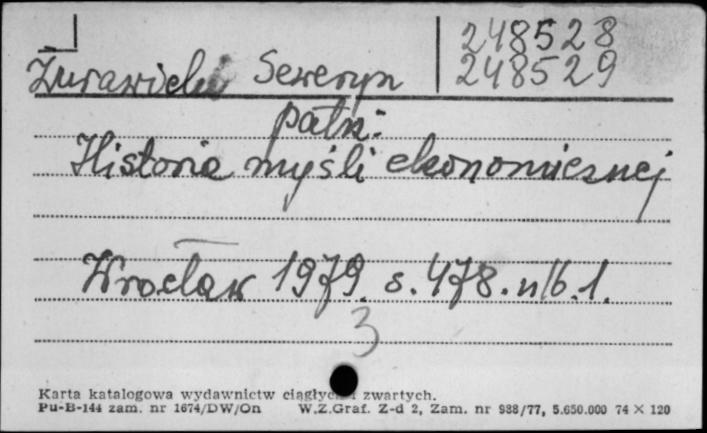 248528
Żurawicki Seweryn 248529
patrz:
Historia myśli ekonomicznej
Wrocław 1979. s. 478. nlb. 1.
3
Karta katalogowa wydawnictw ciągłych i zwartych.
Pu-B-144 zam. nr 1674/DW/On W.Z.Graf. Z-d 2, Zam. nr 988/77, 5.650.000 74 × 120